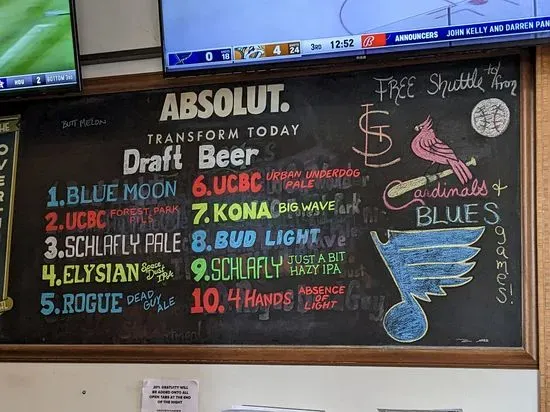 HOU 2 BOTTOM 3RD
0 18 4 24 3RD 12:52 B ANNOUNCERS JOHN KELLY AND DARREN PAN
ABSOLUT.
TRANSFORM TODAY
BUTT MELON
Draft Beer
1. BLUE MOON
2. UCBC FOREST PARK PILS
3. SCHLAFLY PALE
4. ELYSIAN Space Dust IPA
5. ROGUE DEAD GUY ALE
6. UCBC URBAN UNDERDOG PALE
7. KONA BIG WAVE
8. BUD LIGHT
9. SCHLAFLY JUST A BIT HAZY IPA
10. 4 HANDS ABSENCE OF LIGHT
FREE Shuttle to/from
STL
Cardinals &
BLUES
games!
20% GRATUITY WILL
BE ADDED ONTO ALL
OPEN TABS AT THE END
OF THE NIGHT